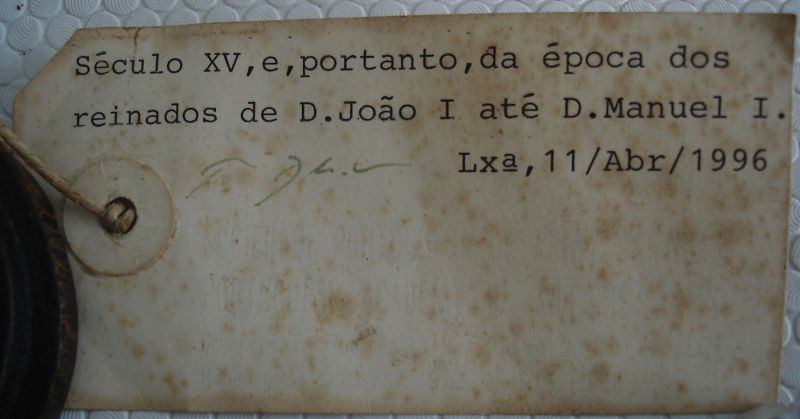 Século XV,e,portanto,da época dos
reinados de D.João I até D.Manuel I.
Lxª,11/Abr/1996